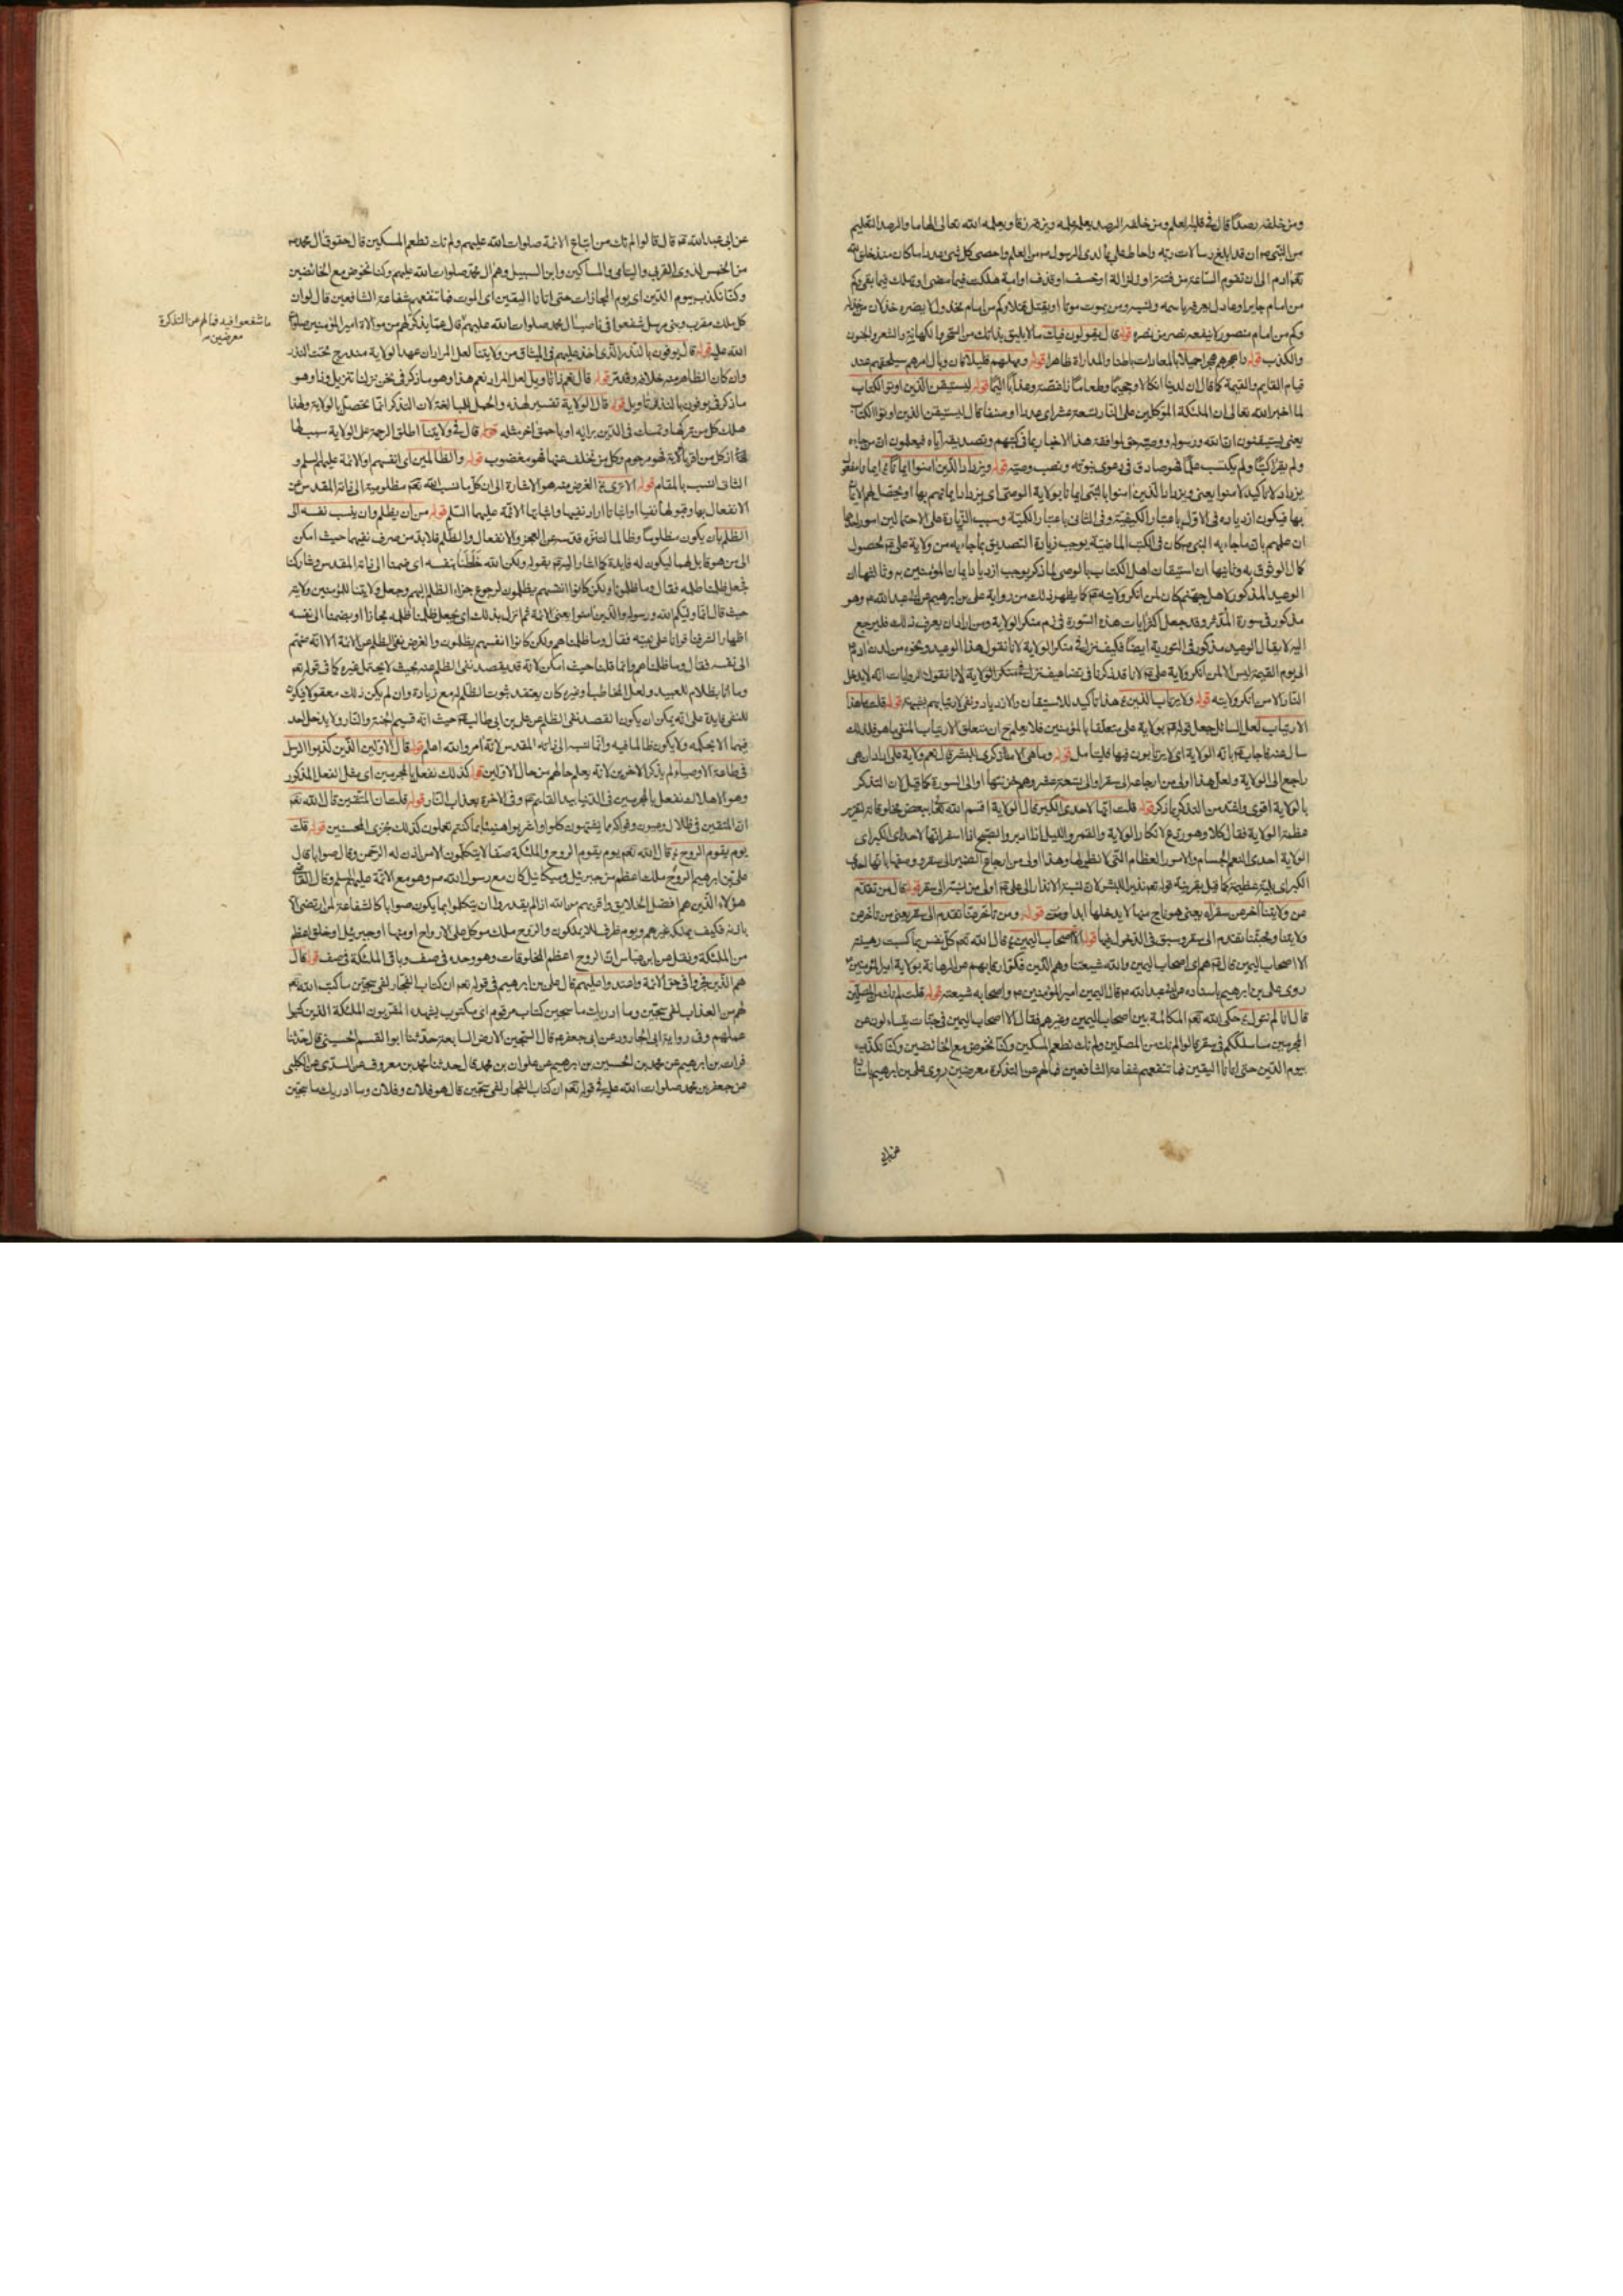 ومن خلفه رصدا قال في قلبه العلم ومن خلفه الرصد يعلمه علمه ويزقه زقا ويعلمه الله تعالى الهاما والرصد التعليم
من النبي ص ان قد ابلغوا رسالات ربه واحاط علي بما لدى الرسول ص من العلم واحصى كل شيء عددا ما كان منذ خلق الله
تعالى ادم الى ان تقوم الساعة من فتنة او زلزلة او خسف او قذف او امة هلكت فيما مضى او تهلك فيما بقي وكم
من امام جاير او عادل يعرفه باسمه ونسبه ومن يموت موتا او يقتل قتلا وكم من امام مخذول لا يضره خذلان من خذله
وكم من امام منصور لا ينفعه نصر من نصره قوله قال يقولون فيك ما لا يليق بذاتك من السحر والكهانة والشعر والجنون
والكذب قوله واهجرهم هجرا جميلا بالمجازات باطنا والمداراة ظاهرا قوله ومهلهم قليلا كان وبال امرهم سيلحقهم عند
قيام القايم والقيمة كما قال ان لدينا انكالا وجحيما وطعاما ذا غصة وعذابا اليما قوله ليستيقن الذين اوتوا الكتاب
لما اخبر الله تعالى ان الملئكة الموكلين على النار تسعة عشر اي عددا او صنفا قال ليستيقن الذين اوتوا الكتاب
يعني يستيقنون ان الله ورسوله ووصيه حق لموافقة هذا الاخبار بما في كتبهم وتصديقه اياه فيعلمون ان من جاء به
ولم يقرأ كتبا ولم يكتسب علما فهو صادق في دعوى نبوته ونصب وصيه قوله ويزداد الذين امنوا ايمانا
يزداد لا تاكيد لامنوا يعني ويزداد الذين امنوا بالنبي ايمانا بولاية الوصي اي يزداد ايمانهم بها او يحصل لهم الايمان
بها فيكون ازدياده في الاول باعتبار الكيفية وفي الثاني باعتبار الكمية وسبب الزيادة على الاحتمالين امور احدها
ان علمهم بان ما جاء به النبي ص كان في الكتب الماضية يوجب زيادة التصديق بما جاء به من ولاية علي ع لحصول
كمال الوثوق به وثانيها ان استيقان اهل الكتاب بالوصي لما ذكر يوجب ازدياد ايمان المؤمنين به وثالثها ان
الوعيد المذكور لاهل جهنم كان لمن انكر ولايته ع كما يظهر ذلك من رواية علي بن ابراهيم عن ابي عبد الله ع وهو
مذكور في سورة المدثر وقد جعل اكثر ايات هذه السورة في ذم منكر الولاية ومن اراد ان يعرف ذلك فليرجع
اليه لا يقال الوعيد مذكور في التورية ايضا فكيف نزل في منكر الولاية لانا نقول هذا الوعيد ونحوه من لدن ادم
الى يوم القيمة ليس الا لمن انكر ولاية علي ع لانا قد ذكرنا في تضاعيف نزل في منكر الولاية لانا نقول الروايات انه لا يدخل
النار الا من انكر ولايته قوله ولا يرتاب الذين هذا تاكيد للاستيقان والازدياد ونفي لارتيابهم بغيبة قوله قلت ما هذا
الارتياب لعل السائل جعل قوله ع بولاية علي متعلقا بالمؤمنين فلا يعلم ح ان متعلق الارتياب المنفي ما هو فلذلك
سال عنه فاجاب ع بانه الولاية اي لا يرتابون فيها فليتامل قوله وما هي الا ذكرى للبشر قال نعم ولاية علي اراد ان هي
راجع الى الولاية ولعل هذا اولى من ارجاعه الى سقر او الى تسعة عشر وهم خزنتها او الى السورة كما قيل لان التذكر
بالولاية اقوى واشد من التذكر بما ذكر قوله قلت انها لاحدى الكبر قال الولاية اقسم الله تعالى ببعض مخلوقاته لتقرير
عظمة الولاية فقال كلا وهو ردع لانكار الولاية والقمر والليل اذا ادبر والصبح اذا اسفر انها لاحدى الكبر اي
الولاية احدى النعم الجسام والامور العظام التي لا نظير لها وهذا اولى من ارجاع الضمير الى سقر ووصفها بانها احدى
الكبر اي بلية عظيمة كما قيل بقرينة قوله تعالى نذيرا للبشر لان نسبة الانذار الى علي ع اولى من نسبته الى سقر قوله قال من تقدم
من ولايتنا اخر عن سقر اه يعني هو ناج منها لا يدخلها ابدا ومن قوله ومن تاخر عنا تقدم الى سقر يعني من تاخر عن
ولايتنا ومحبتنا تقدم الى سقر وسبق في الدخول فيها قوله الا اصحاب اليمين قال الله تعالى كل نفس بما كسبت رهينة
الا اصحاب اليمين قال ع هم اي اصحاب اليمين والله شيعتنا وهم الذين فكوا رقابهم من الرهانة بولاية امير المؤمنين
روى علي بن ابراهيم باسناده عن ابي عبد الله ع قال اليمين امير المؤمنين ع واصحابه شيعته قوله قلت لم نك من المصلين
قال انا لم نتول حكى الله تعالى المكالمة بين اصحاب اليمين وغيرهم فقال الا اصحاب اليمين في جنات يتساءلون عن
المجرمين ما سلككم في سقر قالوا لم نك من المصلين ولم نك نطعم المسكين وكنا نخوض مع الخائضين وكنا نكذب
بيوم الدين حتى اتانا اليقين فما تنفعهم شفاعة الشافعين فما لهم عن التذكرة معرضين روى علي بن ابراهيم باسناده
عن ابي
عن ابي عبد الله ع قال قالوا لم نك من اتباع الائمة صلوات الله عليهم ولم نك نطعم المسكين قال حقوق ال محمد ص
من الخمس لذوي القربى واليتامى والمساكين وابن السبيل وهم ال محمد صلوات الله عليهم وكنا نخوض مع الخائضين
وكنا نكذب بيوم الدين اي يوم المجازات حتى اتانا اليقين اي الموت فما تنفعهم شفاعة الشافعين قال لو ان
كل ملك مقرب ونبي مرسل شفعوا في ناصب ال محمد صلوات الله عليهم قال عما يذكر لهم من موالاة امير المؤمنين صلوات
ما شفعوا فيه فما لهم عن التذكرة
معرضين
الله عليه قوله قال يوفون بالنذر الذي اخذ عليهم في الميثاق من ولايتنا لعل المراد ان عهد الولاية مندرج تحت النذر
وان كان الظاهر منه خلافه وقد مر قوله قال نعم ذا تاويل لعل المراد نعم هذا وهو ما ذكر في نحن نزلنا تنزيل وذا وهو
ما ذكر في يوفون بالنذر تاويل قوله قال الولاية تفسير لهذه والحمل للمبالغة لان التذكر انما يحصل بالولاية ولهذا
هلك كل من تركها وتمسك في الدين برايه او باحمق اخر مثله قوله قال في ولايتنا اطلق الرحمة على الولاية سبب لها
اذ كل من اقر بالولاية فهو مرحوم وكل من تخلف عنها فهو مغضوب قوله والظالمين اي انفسهم او الائمة عليهم السلم و
الثاني انسب بالمقام قوله الا ترى الغرض منه هو الاشارة الى ان كل ما نسب الله تعالى مظلومية الى ذاته المقدس عن
الانفعال بها وقبولها نفيا او اثباتا اراد نفيها واثباتها الائمة عليهم السلم قوله من ان يظلم وان ينسب نفسه الى
الظلم بان يكون مظلوما وظالما لتنزه قدسه عن العجز والانفعال والظلم فلا بد من صرف نفيهما حيث امكن
الى من هو قابل لهما ليكون له فايدة كما اشار اليه ع بقوله ولكن الله خلطنا بنفسه اي ضمنا الى ذاته المقدس وشاركنا
فجعل ظلمنا ظلمه فقال وما ظلمونا ولكن كانوا انفسهم يظلمون لرجوع جزاء الظلم اليهم وجعل ولايتنا للمؤمنين ولايته
حيث قال انما وليكم الله ورسوله والذين امنوا يعني الائمة ثم انزل بذلك اي بجعل ظلمنا ظلمه مجازا او بضمنا الى نفسه
اظهارا لشرفنا قرانا على نبيه فقال وما ظلمناهم ولكن كانوا انفسهم يظلمون والغرض نفي الظلم عن الائمة الا انه ضمهم
الى نفسه فقال وما ظلمناهم وانما قلنا حيث امكن لانه قد يقصد نفي الظلم عنه بحيث لا يحتمل غيره كما في قوله تعالى
وما انا بظلام للعبيد ولعل المخاطب او غيره كان يعتقد ثبوت الظلم له مع زيادة وان لم يكن ذلك معقولا فيكون
للنفي فايدة على انه يمكن ان يكون القصد نفي الظلم عن علي بن ابي طالب ع حيث انه قسيم الجنة والنار ولا يدخل احد
فيهما الا بحكمه ولا يكون ظالما فيه وانما نسبه الى ذاته المقدس لانه امره والله اعلم قوله قال الاولين الذين كذبوا الرسل
في طاعة الاوصياء لم يذكر الاخرين لانه يعلم حالهم من حال الاولين قوله كذلك نفعل بالمجرمين اي مثل الفعل المذكور
وهو الاهلاك نفعل بالمجرمين في الدنيا بيد القايم ع وفي الاخرة بعذاب النار قوله قلت ان المتقين قال الله تعالى
ان المتقين في ظلال وعيون وفواكه مما يشتهون كلوا واشربوا هنيئا بما كنتم تعملون كذلك نجزي المحسنين قوله قلت
يوم يقوم الروح قال الله تعالى يوم يقوم الروح والملئكة صفا لا يتكلمون الا من اذن له الرحمن وقال صوابا قال
علي بن ابراهيم الروح ملك اعظم من جبرئيل وميكائيل كان مع رسول الله ص وهو مع الائمة عليهم السلم وقال القاضي
هؤلاء الذين هم افضل الخلايق واقربهم من الله اذا لم يقدروا ان يتكلموا بما يكون صوابا كالشفاعة لمن ارتضى الا
باذنه فكيف يملكه غيرهم ويوم ظرف للا يملكون والروح ملك موكل على الارواح او جنسها او جبرئيل او خلق اعظم
من الملئكة ونقل عن ابن عباس ان الروح اعظم المخلوقات وهو وحده في صف وباقي الملئكة في صف قوله قال
هم الذين فجروا في حق الائمة واعتدوا عليهم قال علي بن ابراهيم في قوله تعالى ان كتاب الفجار لفي سجين ما كتب الله تعالى
لهم من العذاب لفي سجين وما ادريك ما سجين كتاب مرقوم اي مكتوب يشهده المقربون الملئكة الذين كتبوا
عملهم وفي رواية ابي الجارود عن ابي جعفر ع قال السجين الارض السابعة حدثنا ابو القسم الحسيني قال حدثنا
فرات بن ابراهيم عن محمد بن الحسين بن ابراهيم عن علوان بن محمد قال حدثنا محمد بن معروف عن السدي عن الكلبي
عن جعفر بن محمد صلوات الله عليه في قوله تعالى ان كتاب الفجار لفي سجين قال هو فلان وفلان وما ادريك ما سجين